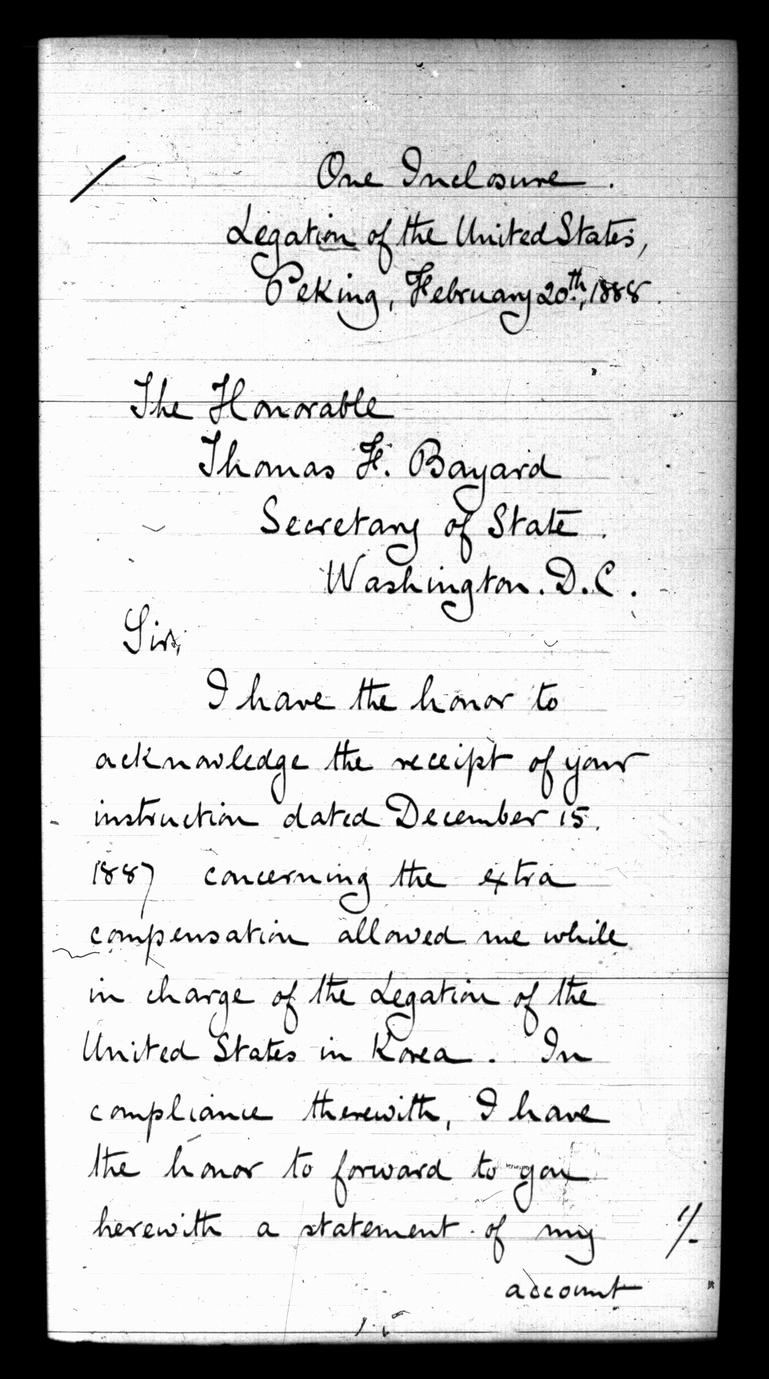 One Inclosure.
Legation of the United States,
Peking, February 20th, 1888.
The Honorable
Thomas F. Bayard
Secretary of State.
Washington. D.C.
Sir,
I have the honor to
acknowledge the receipt of your
instruction dated December 15.
1887 concerning the extra
compensation allowed me while
in charge of the Legation of the
United States in Korea. In
compliance therewith, I have
the honor to forward to you
herewith a statement of my
account